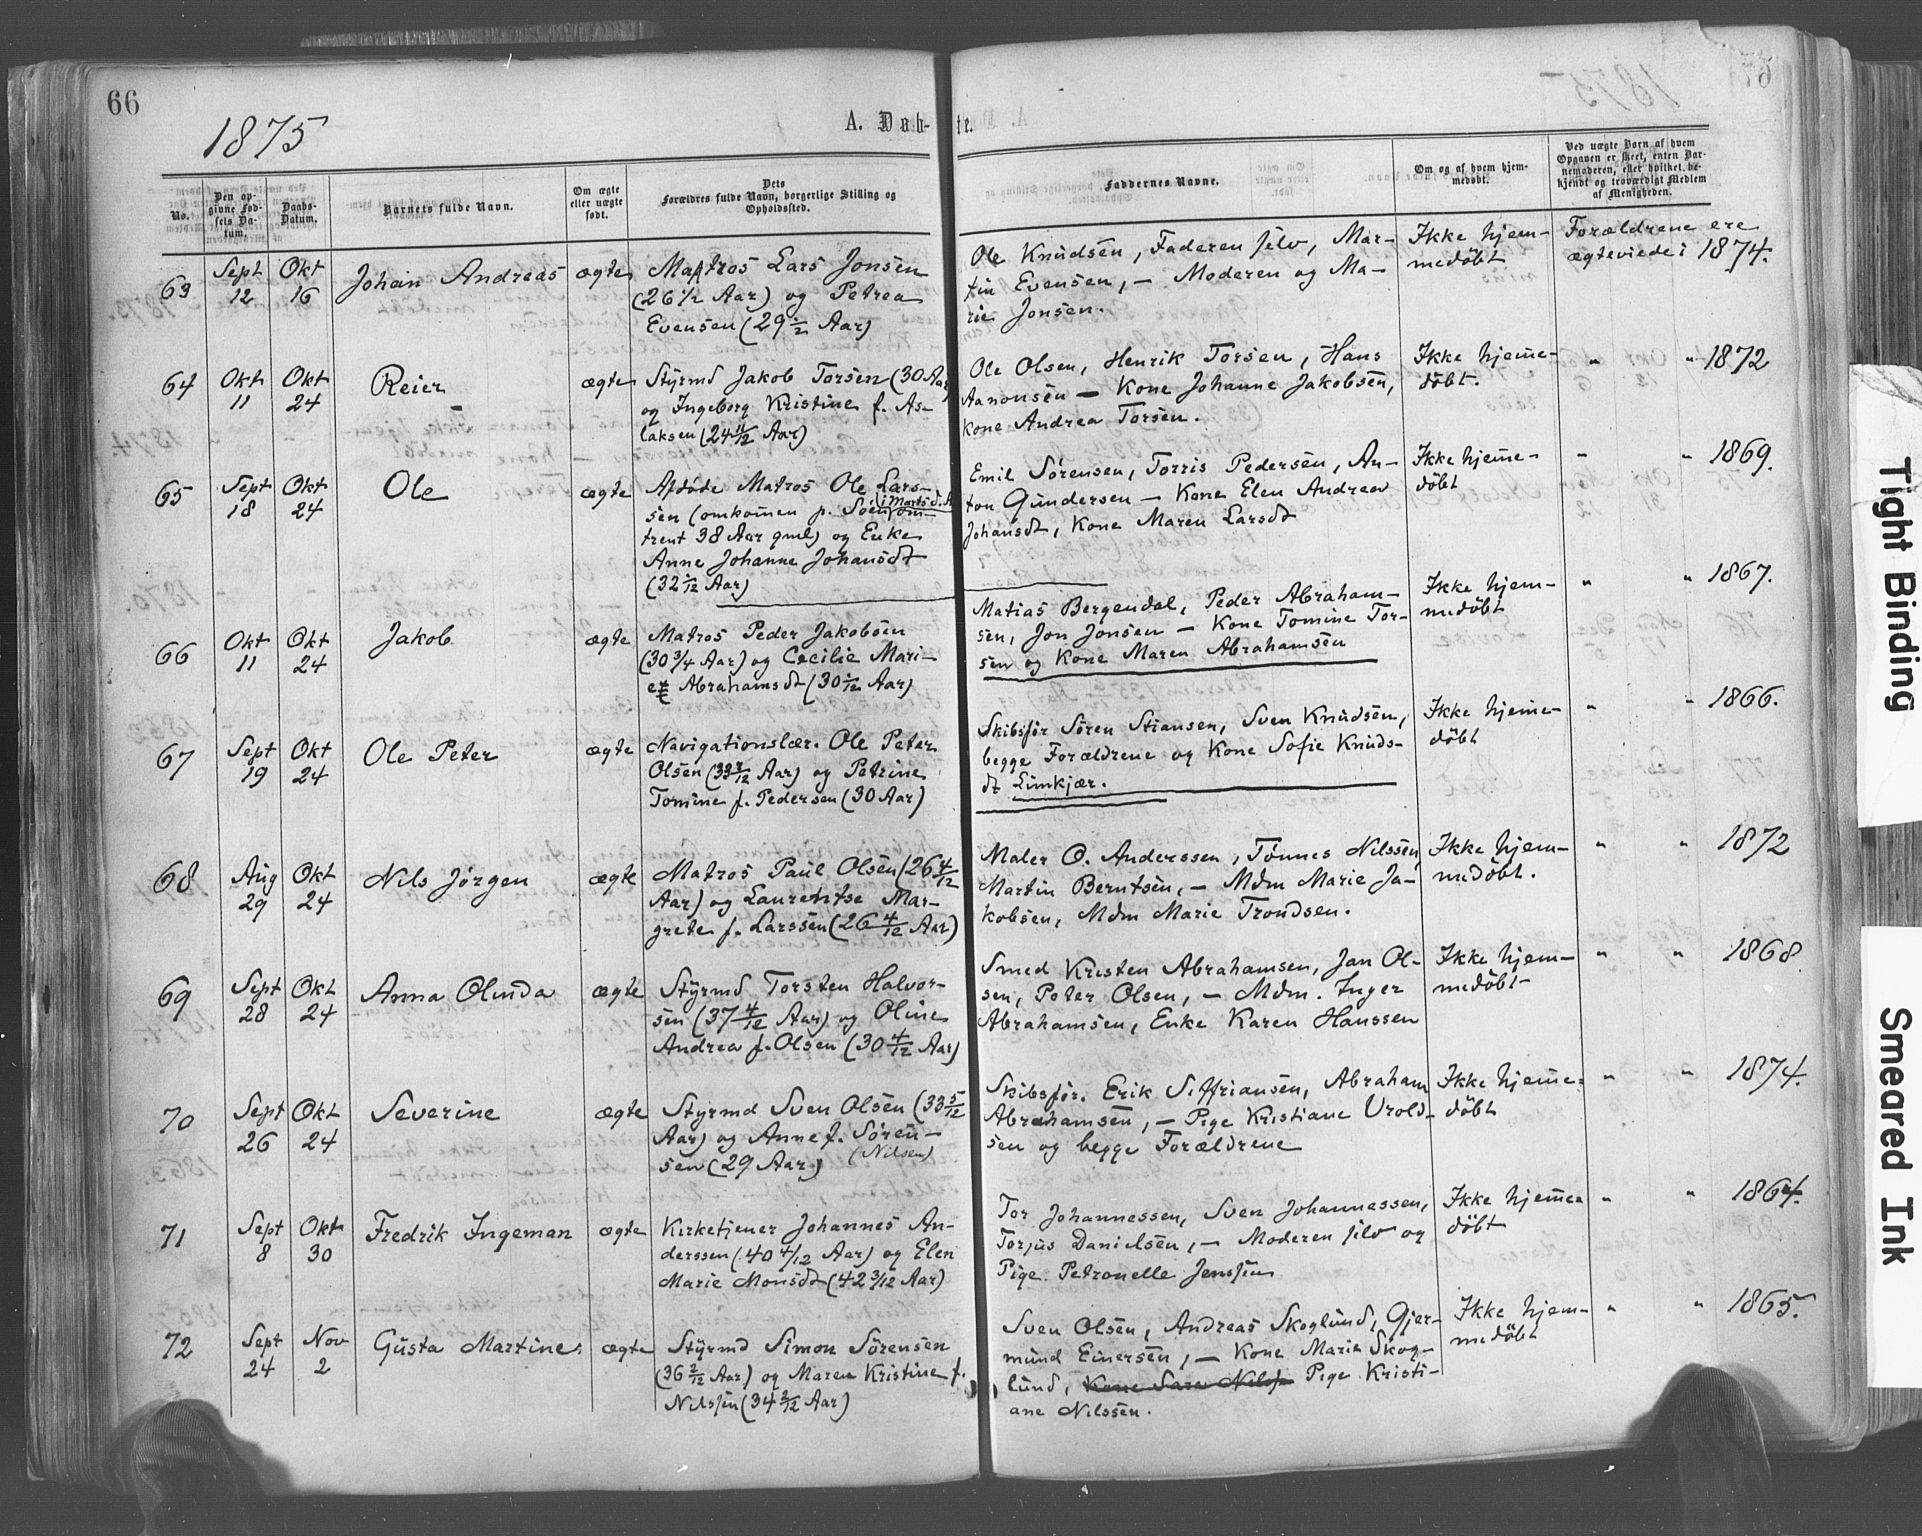 66
1875
A. Døb-
te.
No.
Den op-
givne Fød-
sels Da-
tum.
Daabs-
Datum.
Barnets fulde Navn.
Om ægte
eller uægte
født.
Dets
Forældres fulde Navn, borgerlige Stilling og
Opholdssted.
Faddernes Navne.
Om og af hvem hjem-
medøbt.
Ved uægte Børn af hvem
Opgaven er skeet, enten Bar-
nemoderen, eller hvilket be-
kjendt og troværdigt Medlem
af Menigheden.
63
Sept
12
Okt
16
Johan Andreas
ægte
Matros Lars Jonsen
(26 1/2 Aar) og Petrea
Evensen (29 Aar)
Ole Knudsen, Faderen selv, Mar-
tin Evensen, — Moderen og Ma-
rie Jonsen.
Ikke hjem-
medøbt
Forældrene ere
ægteviede i 1874.
64
Okt
11
Okt
24
Reier
ægte
Styrmd Jakob Torsen (30 Aar)
og Ingeborg Kristine f. As-
laksen (24 11/12 Aar)
Ole Olsen, Henrik Torsen, Hans
Aanonsen — Kone Johanne Jakobsen,
Kone Andrea Torsen.
Ikke hjemme-
døbt.
" " 1872
65
Sept
18
Okt
24
Ole
ægte
Afdøde Matros Ole Lars-
i Marts d. A
sen (omkommen p. Søen, om-
trent 38 Aar gml) og Enke
Anne Johanne Johansdt
(32 1/12 Aar)
Emil Sørensen, Torris Pedersen, An-
ton Gundersen — Kone Elen Andrea
Johansdt, Kone Maren Larsdt
Ikke hjemme-
døbt
" " 1869.
66
Okt
11
Okt
24
Jakob
ægte
Matros Peder Jakobsen
(30 3/4 Aar) og Cecilie Mari-
e Abrahamsdt (30 1/12 Aar)
Matias Bergendal, Peder Abraham-
sen, Jon Jonsen — Kone Tomine Tor-
sen og Kone Maren Abrahamsen
Ikke hjem-
medøbt
" " 1867.
67
Sept
19
Okt
24
Ole Peter
ægte
Navigationslær. Ole Peter
Olsen (33 /12 Aar) og Petrine
Tomine f. Pedersen (30 Aar)
Skibsfør Søren Stiansen, Sven Knudsen,
begge Forældrene og Kone Sofie Knuds-
dt Limkjær.
Ikke hjemme-
døbt
" " 1866.
68
Aug
29
Okt
24
Nils Jørgen
ægte
Matros Paul Olsen (26 4/12
Aar) og Laurentse Mar-
grete f. Larssen (26 4/12 Aar)
Maler O. Anderssen, Tønnes Nilssen,
Martin Berntsen, — Mdm Marie Ja-
kobsen, Mdm Marie Trondsen.
Ikke hjem-
medøbt.
" " 1872
69
Sept
28
Okt
24
Anna Olinda
ægte
Styrmd Torsten Halvor-
sen (37 4/12 Aar) og Oline
Andrea f. Olsen (30 4/12 Aar)
Smed Kristen Abrahamsen, Jan Ol-
sen, Peter Olsen, — Mdm. Inger
Abrahamsen, Enke Karen Hanssen
Ikke hjem-
medøbt
" " 1868.
70
Sept
26
Okt
24
Severine
ægte
Styrmd Sven Olsen (33 5/12
Aar) og Anne f. Søren-
sen (29 Aar) (Nilsen)
Skibsfør. Erik Siffriansen, Abraham
Abrahamsen, — Pige Kristiane Vrold-
sen og begge Forældrene
Ikke hjemme-
døbt
" " 1874.
71
Sept
8
Okt
30
Fredrik Ingeman
ægte
Kirketjener Johannes An-
derssen (40 4/12 Aar) og Elen
Marie Monsdt (42 3/12 Aar)
Tor Johannessen, Sven Johannessen,
Torjus Danielsen, — Moderen selv og
Pige. Petronelle Jenssen
Ikke hjemme-
døbt
" " 1864.
72
Sept
24
Nov
2
Gusta Martine.
ægte
Styrmd Simon Sørensen
(36 2/12 Aar) og Maren Kristine f.
Nilssen (34 2/12 Aar)
Sven Olsen, Andreas Skoglund, Gjer-
mund Einersen, — Kone Marie Skog-
lund, Kone Sara Nilss Pige Kristi-
ane Nilssen.
Ikke hjem-
medøbt
" " 1865.
Tight Binding
Smeared Ink